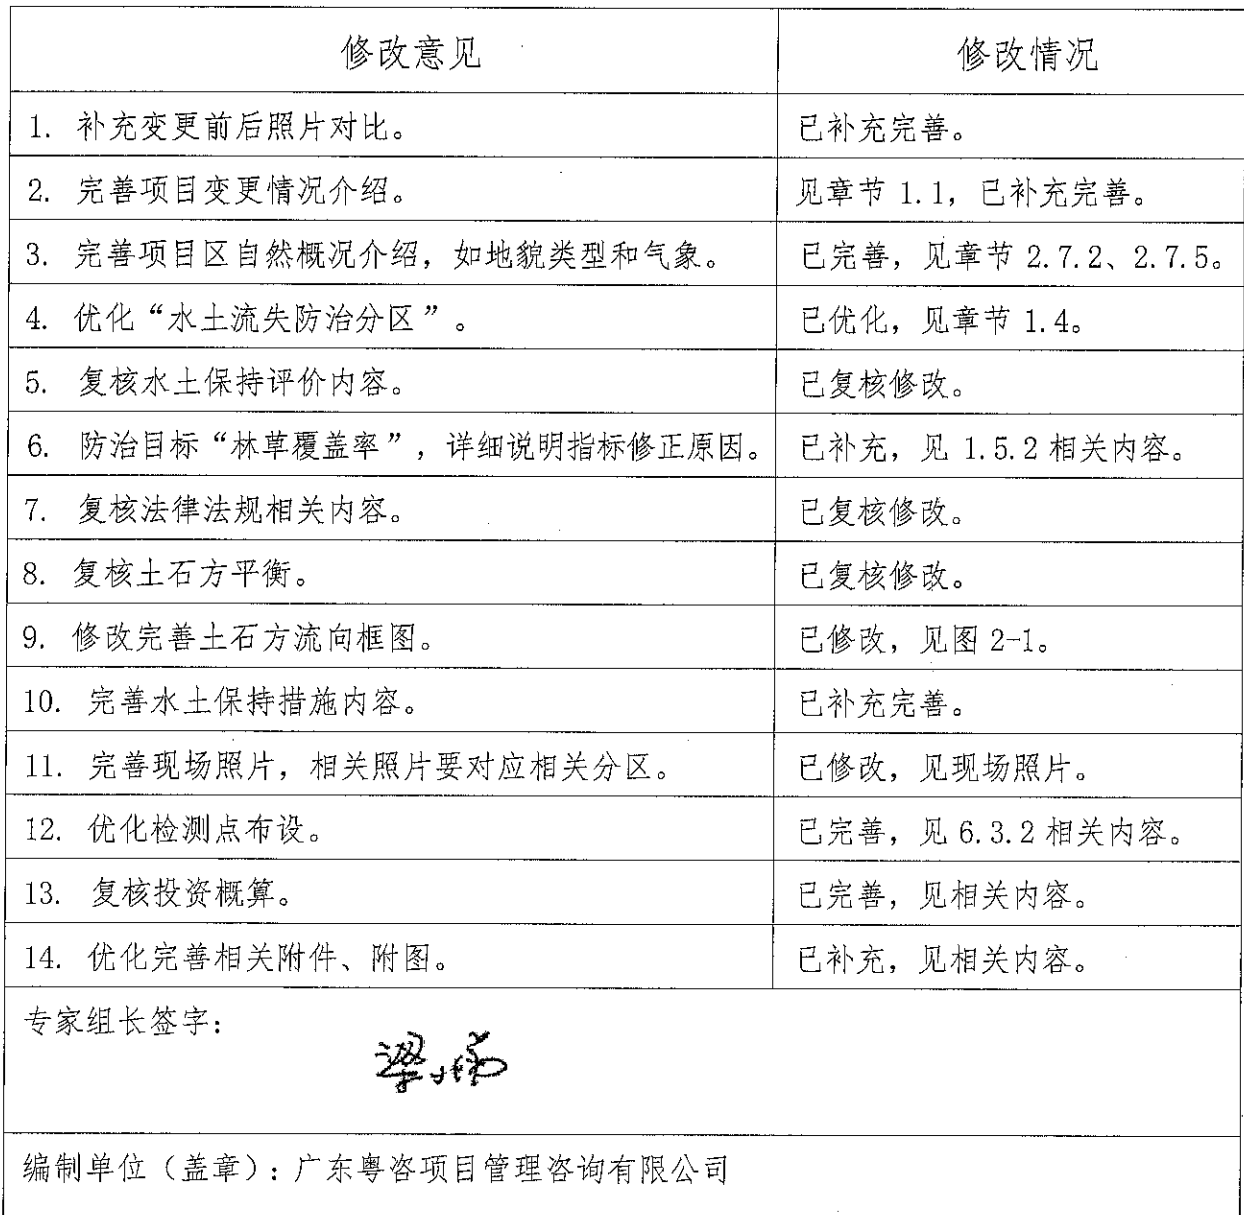 修改意见 修改情况
1. 补充变更前后照片对比。 已补充完善。
2. 完善项目变更情况介绍。 见章节 1.1，已补充完善。
3. 完善项目区自然概况介绍，如地貌类型和气象。 已完善，见章节 2.7.2、2.7.5。
4. 优化“水土流失防治分区”。 已优化，见章节 1.4。
5. 复核水土保持评价内容。 已复核修改。
6. 防治目标“林草覆盖率”，详细说明指标修正原因。 已补充，见 1.5.2 相关内容。
7. 复核法律法规相关内容。 已复核修改。
8. 复核土石方平衡。 已复核修改。
9. 修改完善土石方流向框图。 已修改，见图 2-1。
10. 完善水土保持措施内容。 已补充完善。
11. 完善现场照片，相关照片要对应相关分区。 已修改，见现场照片。
12. 优化检测点布设。 已完善，见 6.3.2 相关内容。
13. 复核投资概算。 已完善，见相关内容。
14. 优化完善相关附件、附图。 已补充，见相关内容。
专家组长签字：
梁
编制单位（盖章）：广东粤咨项目管理咨询有限公司